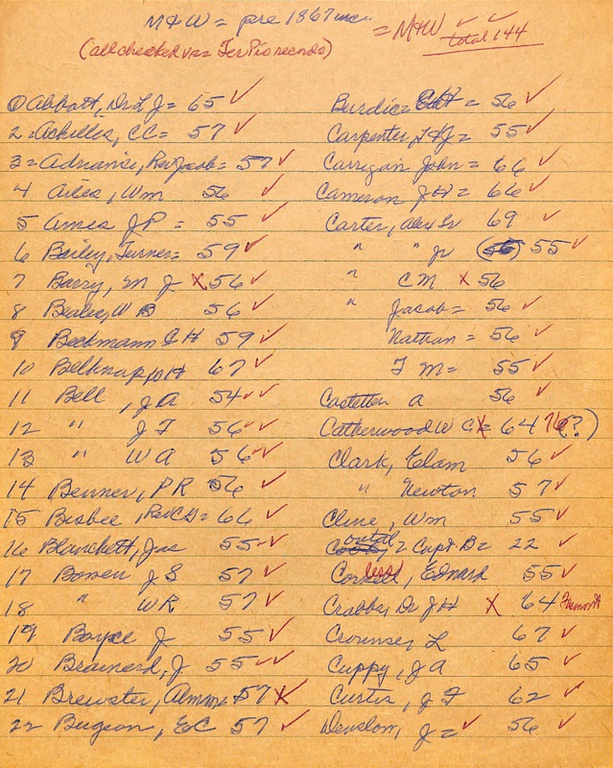 M+W = pre 1867 inc. = M+W ✓ ✓
(all checked via Ter Pio records) total 144
1 Abbott, Dr L J = 65 ✓
2 = Achilles, CC = 57 ✓
3 = Adriance, Rev Jacob = 57 ✓
4 Arles, Wm 56 ✓
5 Ames J P = 55 ✓
6 Bailey, Turner = 59 ✓
7 Barry, M J X 56 ✓
8 Bealey, W B 56 ✓
9 Beckmann G H 59 ✓
10 Belknap, 67 ✓
11 Bell, J A 54 ✓✓
12 " J F 56 ✓✓
13 " W A 56 ✓✓
14 Benner, P R 56 ✓
15 Bisbee, Rev CD = 66 ✓
16 Blanchett, Jas 55 ✓✓
17 Bowen J S 57 ✓
18 " W R 57 ✓
19 Boyce J 55 ✓✓
20 Brainerd, J 55 ✓✓
21 Brewster, 57 X
22 Bugeon, E C 57 ✓
Burdic = = 56 ✓
Carpenter = 55 ✓
Carrigan John = 66 ✓
Cameron J H = 66 ✓
Carter, Alex Sr 69 ✓
" " Jr 55 ✓
" C M X 56
" Jacob = 56 ✓
Nathan = 56 ✓
F M = 55 ✓
Castetter A 56 ✓
Catherwood W C = 64 (?)
Clark, Elam 56 ✓
" Newton 57 ✓
Cline, Wm 55 ✓
= Capt D = 22 ✓
Edward 55 ✓
Crabbs, Dr J H X 64 Fremont
Crounse, L 67 ✓
Cuppy, J A 65 ✓
Curtis, J F 62 ✓
J = ✓ 56 ✓